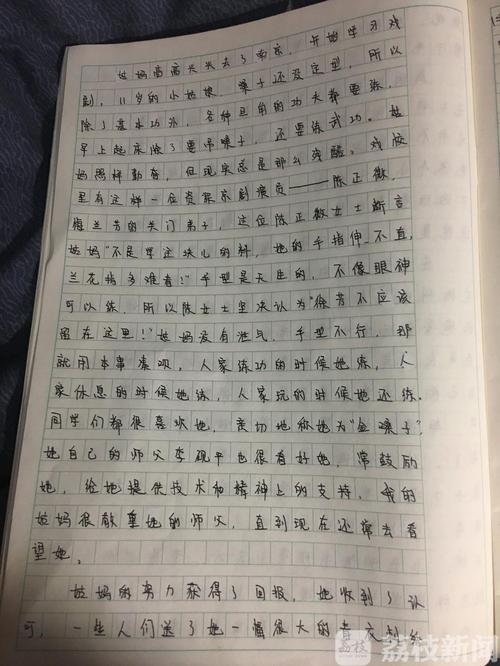 姑妈高高兴兴去了南京，开始学习戏
剧，11岁的小姑娘，嗓子还没定型，所以
除了基本功外，各种旦角的功夫都要练，
早上起床除了要吊嗓子，还要练武功。姑
妈照样勤奋，但现实总是那么残酷。戏校
里有这样一位资深京剧演员——陈正薇，
梅兰芳的关门弟子，这位陈正薇女士断言
姑妈"不是学这块儿的料，她的手指伸不直，
兰花指多难看！"手型是天生的，不像眼神
可以练，所以陈女士坚决认为"徐芳不应该
留在这里！"姑妈没有泄气，手型不行，那
就用本事凑呗，人家练功的时候她练，人
家休息的时候她练，人家玩的时候她还练。
同学们都很喜欢她，亲切地称她为"金嗓子"，
她自己的师父李砚萍也很看好她，常鼓励
她，给她提供技术和精神上的支持，我的
姑妈很敬重她的师父，直到现在还常去看
望她。
姑妈的努力获得了回报，她收到了认
可，一些人们送了她一幅很大的
荔枝新闻